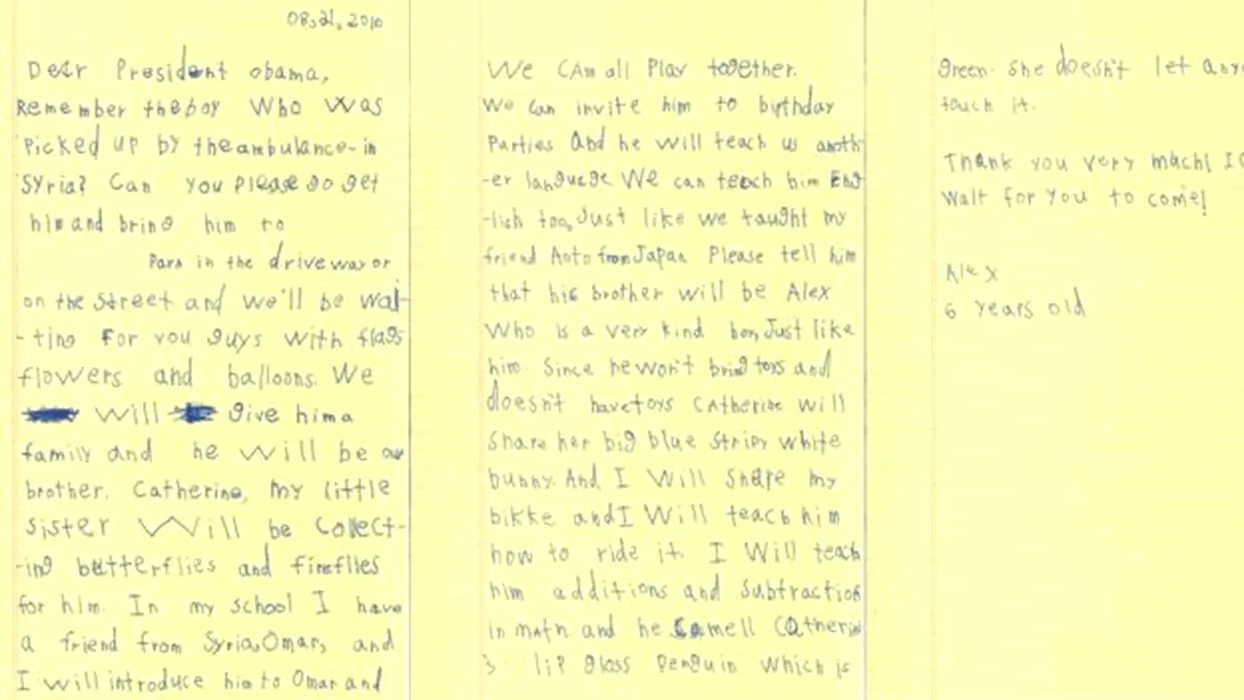 08.21, 2016
Dear President obama,
Remember the boy who was
Picked up by the ambulance in
Syria? Can you please go get
him and bring him to
Park in the driveway or
on the street and we'll be wai-
-ting for you guys with flags
flowers and balloons. We
will give him a
family and he will be our
brother. Catherine, my little
sister will be collect-
-ing butterflies and fireflies
for him. In my school I have
a friend from Syria, Omar, and
I will introduce him to Omar and
We can all play together.
We can invite him to birthday
Parties and he will teach us anoth
-er language. We can teach him Eng
-lish too, Just like we taught my
friend Aoto from Japan Please tell him
that his brother will be Alex
Who is a very kind boy, Just like
him. Since he won't bring toys and
doesn't have toys Catherine will
share her big blue stripy white
bunny. And I will share my
bikke and I will teach him
how to ride it. I will teach
him additions and subtraction
in math and he smell Catherine
s lip gloss penguin which is
green. she doesn't let any
touch it.
Thank you very much! I
wait for you to come!
Alex
6 years old